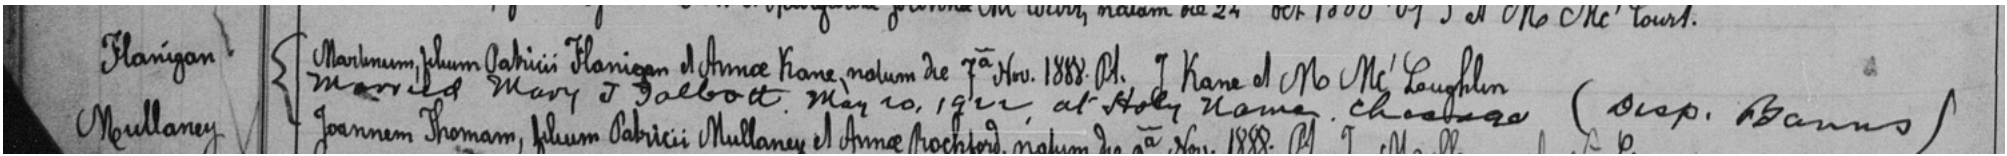 natam die 24 Oct 1888 et Mo Mc'Court.
Flanigan
Martinum, filium Patricii Flanigan et Annæ Kane, natum die 7ª Nov. 1888. Pt. J Kane et M Mc'Loughlin
Married Mary J Talbott. May 20, 1922, at Holy Name. Chicago (Disp. Banns)
Mullaney
Joannem Thomam, filium Patricii Mullaney et Annæ Rochford, natum die Nov. 1888. Pt. J